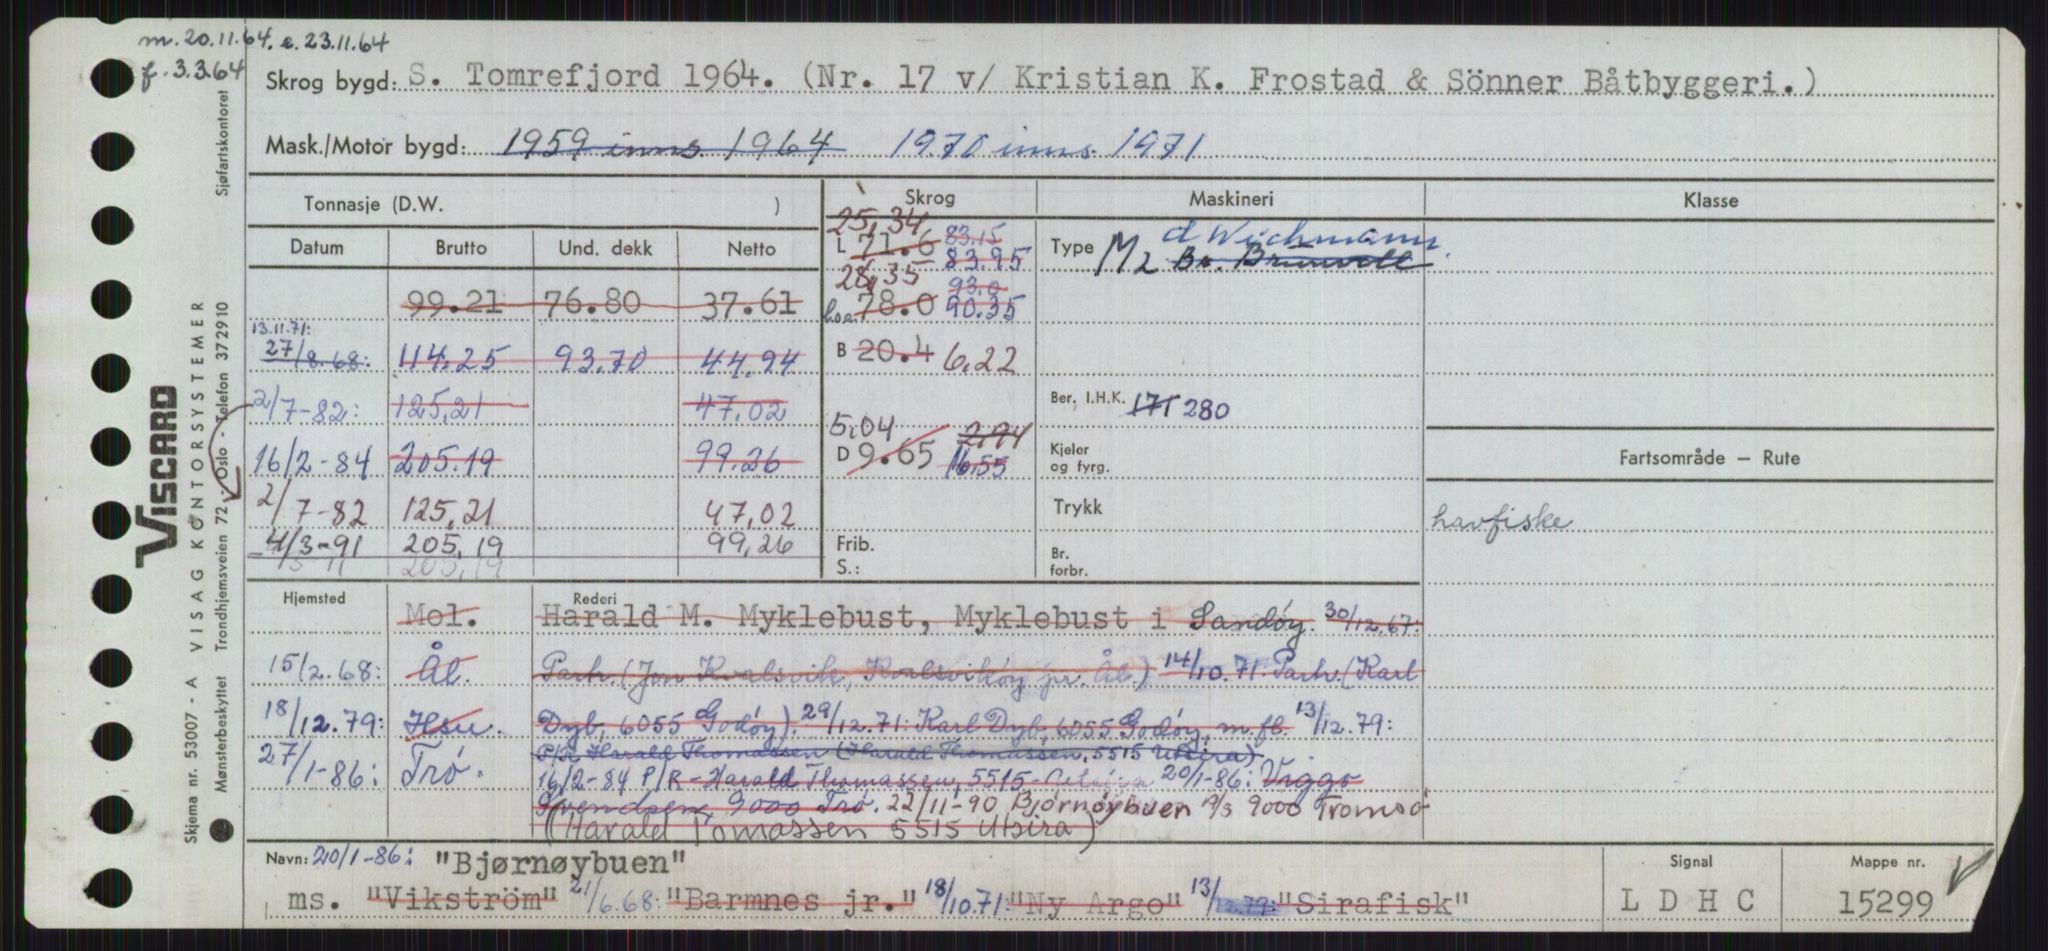 m. 20.11.64. e. 23.11.64
f. 3.3.64
Skrog bygd: S. Tomrefjord 1964. (Nr. 17 v/ Kristian K. Frostad & Sönner Båtbyggeri.)
Mask./Motor bygd: 1959 inns. 1964 1970 inns. 1971
Tonnasje (D.W. )
Datum Brutto Und. dekk Netto
99.21 76.80 37.61
13.11.71:
27/8.68: 114.25 93.70 44.94
2/7-82: 125,21 47,02
16/2-84 205.19 99.26
2/7-82 125,21 47,02
4/3-91 205,19 99,26
205,19
Skrog
25,34
L 71.6 83.15
83.95
28,35
hoa. 78.0 93.0
90.35
B 20.4 6,22
5,04 2,94
D 9.65 16.55
Frib.
S.:
Maskineri
Type M 2 d Wichmann
Br. Brunvoll
Ber. I.H.K. 171 280
Kjeler
og fyrg.
Trykk
Br.
forbr.
Klasse
Fartsområde – Rute
havfiske
Hjemsted Rederi
Mol. Harald M. Myklebust, Myklebust i Sandøy. 30/12.67:
15/2.68: Ål. Parh. (Jon Kvalsvik, Kvalsvikøy pr. Ål.) 14/10.71: Parh. (Karl
18/12.79: Hsu. Dyb, 6055 Godøy). 29/12.71: Karl Dyb, 6055 Godøy, m.fl. 13/12.79:
P/R Harald Thomassen (Harald Thomassen, 5515 Utsira)
27/1-86: Trø. 16/2-84 P/R - Harald Thomassen, 5515 20/1-86: Viggo
Svendsen, 9000 Trø. 22/11-90 Bjørnøybuen A/S 9000 Tromsø
(Harald Tomassen 5515 Utsira)
Navn: 20/1-86: "Bjørnøybuen"
ms. "Vikström" 21/6.68: "Barmnes jr." 18/10.71: "Ny Argo" 13/12.79: "Sirafisk"
Signal
L D H C
Mappe nr.
15299
VISCARD
Skjema nr. 53007 - A VISAG KONTORSYSTEMER
Mønsterbeskyttet Trondhjemsveien 72 - Oslo - Telefon 372910
Sjøfartskontoret